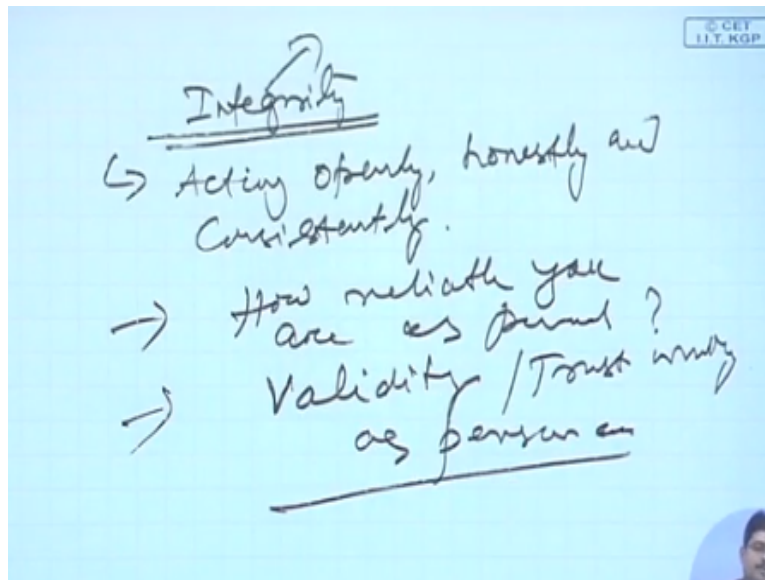 © CET
I.I.T. KGP
Integrity
Acting openly, honestly and
Consistently.
How reliable you
are as person?
Validity / Trust worthy
as person